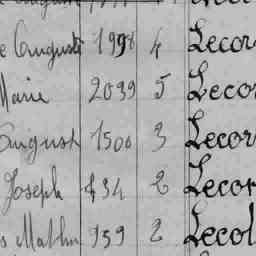 e Auguste 1998 4 Lecor
Marie 2039 5 Lecor
August 1506 3 Lecor
Joseph 434 2 Lecor
s Mathu 959 2 Lecol